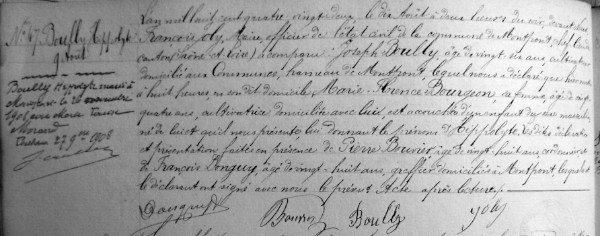 N° 47 Boully Hippolyte
9 Août
Boully Hippolyte marié à
le 26 novembre
1908 avec
Moreau
27 9bre 1908
L'an mil huit cent quatre-vingt deux, le dix Août à deux heures du soir, devant nous
François Joly, Maire, officier de l'état civil de la commune de Montpont, chef lieu de
canton (Saône et Loire) a comparu: Joseph Boully, âgé de vingt six ans, cultivateur
domicilié aux Communes, hameau de Montpont, lequel nous a déclaré que hier soir
à huit heures, en son dit domicile, Marie Florence Bourgeon, sa femme, âgée de vingt
quatre ans, cultivatrice domiciliée avec lui, est accouchée d'un enfant du sexe masculin,
né de lui et qu'il nous présente, lui donnant le prénom d'Hippolyte, les dites déclaration
et présentation faites en présence de Pierre Bouvier, âgé de vingt-huit ans, cordonnier et
de François Donguy, âgé de vingt-huit ans, greffier domiciliés à Montpont, lesquels et
le déclarant ont signé avec nous le présent Acte après lecture.
Donguy F Bouvier Boully Joly